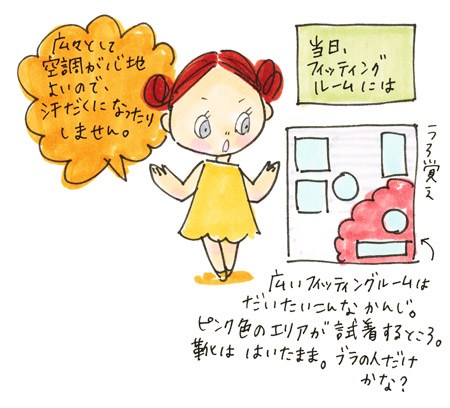 広々として
空調が心地
よいので、
汗だくになったり
しません。
当日、
フィッティング
ルームには
うろ覚え
広いフィッティングルームは
だいたいこんなかんじ。
ピンク色のエリアが試着するところ。
靴ははいたまま。ブラの人だけ
かな?